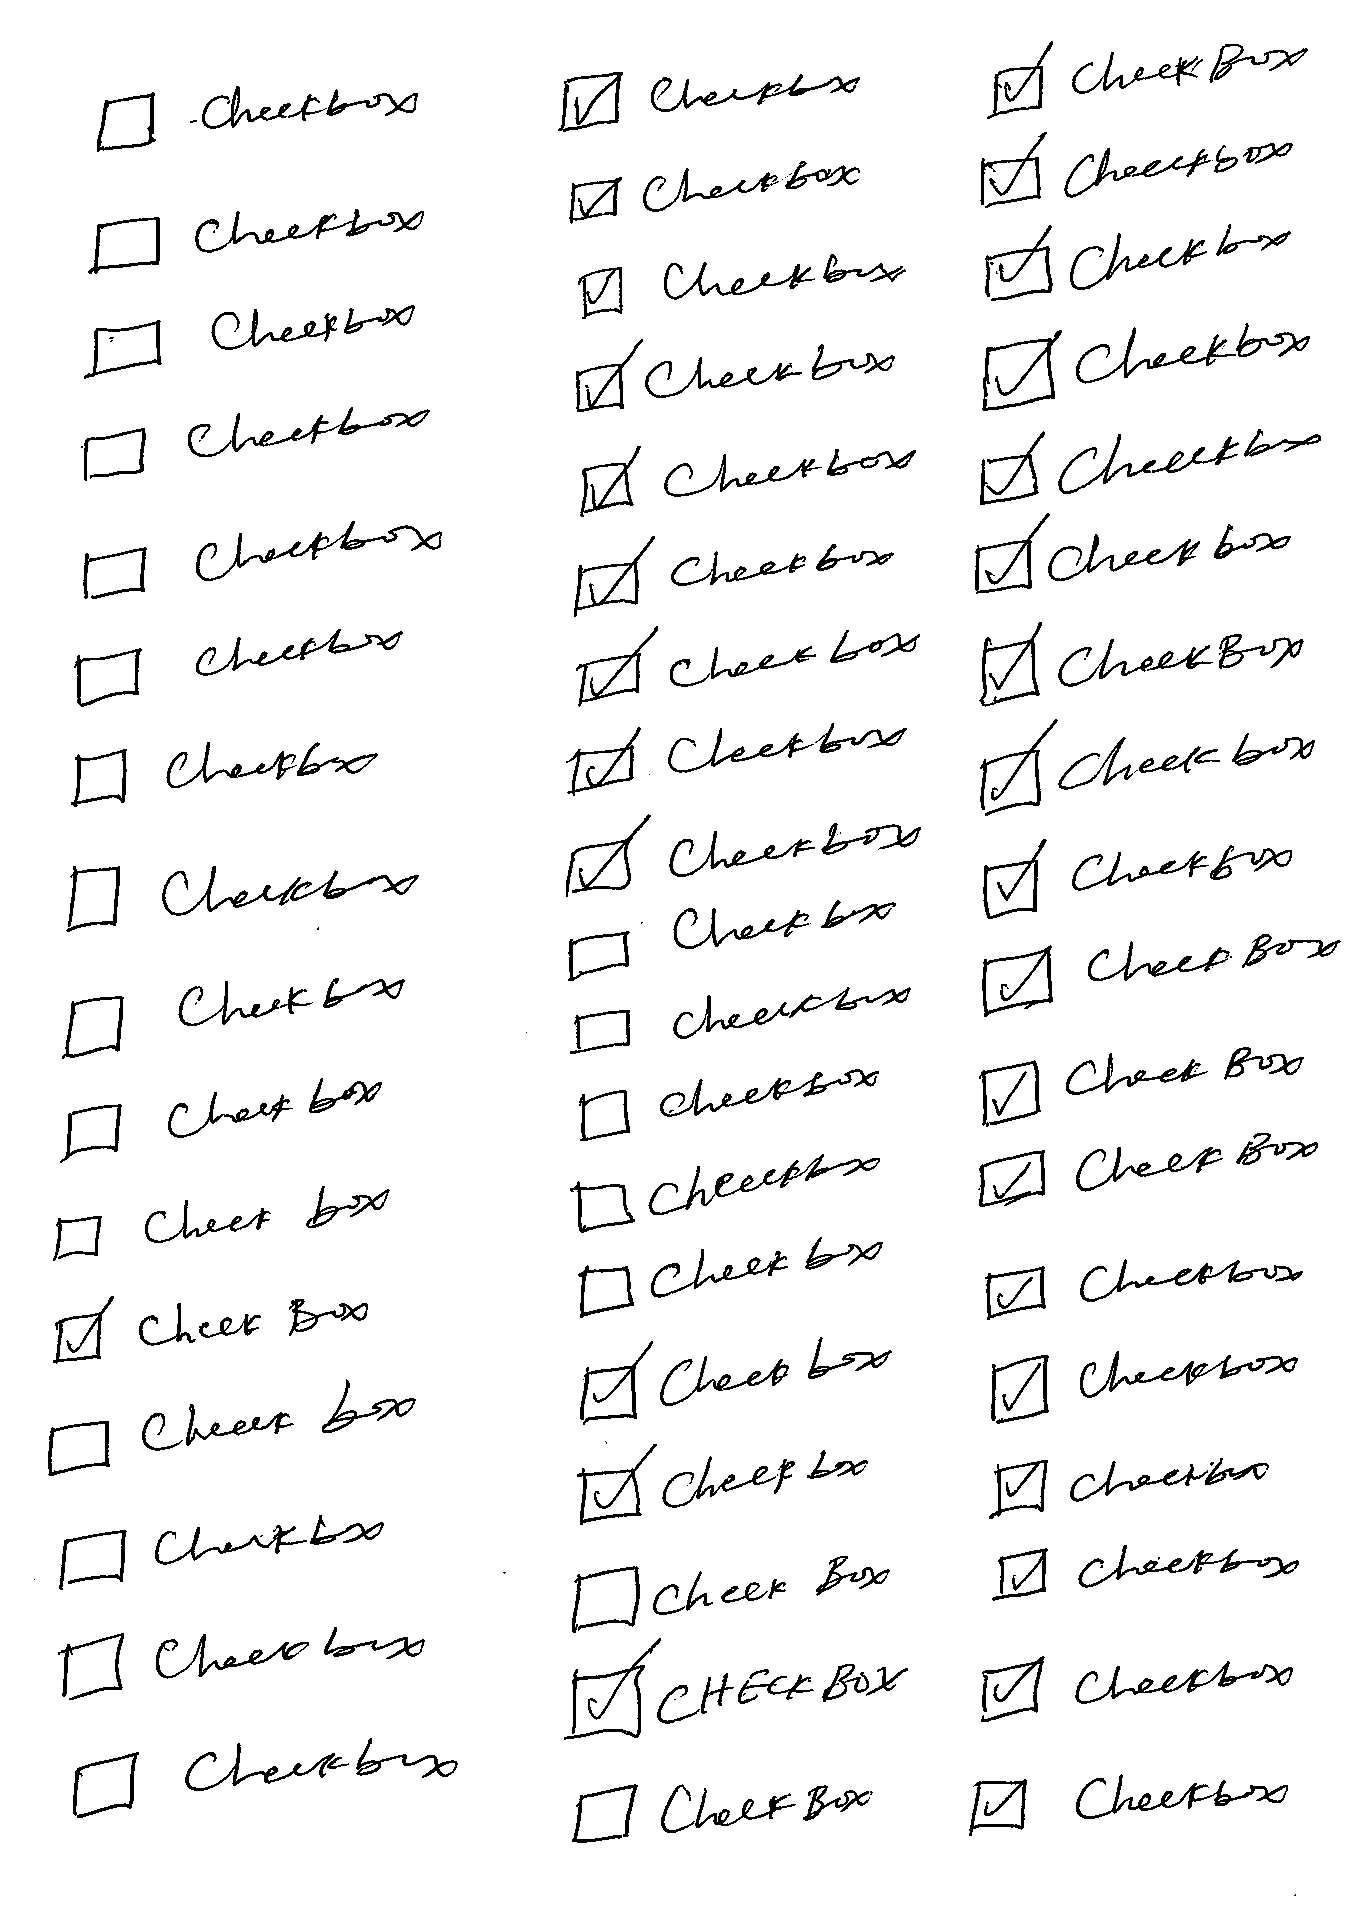 ☐ Checkbox
☐ Checkbox
☐ Checkbox
☐ Checkbox
☐ Checkbox
☐ Checkbox
☐ Checkbox
☐ Checkbox
☐ Checkbox
☐ Check box
☐ Check box
☑ Check Box
☐ Check box
☐ Checkbox
☐ Check box
☐ Checkbox
☑ Checkbox
☑ Checkbox
☑ Checkbox
☑ Checkbox
☑ Checkbox
☑ Checkbox
☑ Check box
☑ Checkbox
☑ Checkbox
☐ Checkbox
☐ Checkbox
☐ Checkbox
☐ Checkbox
☐ Check box
☑ Check box
☑ Check box
☐ Check Box
☑ CHECKBOX
☐ Check Box
☑ Check Box
☑ Checkbox
☑ Checkbox
☑ Checkbox
☑ Checkbox
☑ Check box
☑ Check Box
☑ Check box
☑ Checkbox
☑ Check Box
☑ Check Box
☑ Check Box
☑ Checkbox
☑ Checkbox
☑ Checkbox
☑ Checkbox
☑ Checkbox
☑ Checkbox